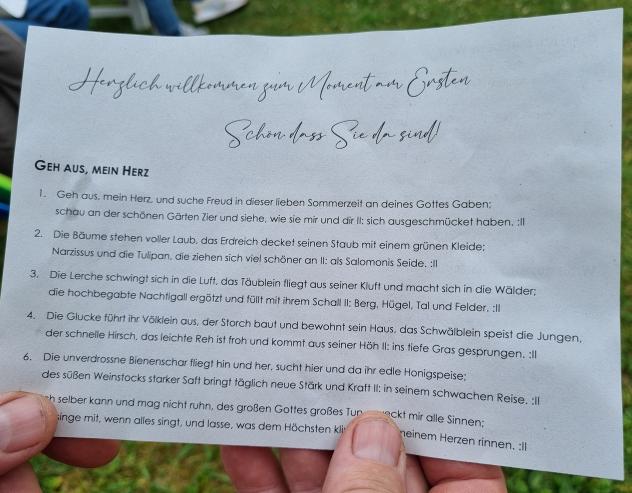 Herzlich willkommen zum Moment am Ersten
Schön dass Sie da sind!
GEH AUS, MEIN HERZ
1. Geh aus, mein Herz, und suche Freud in dieser lieben Sommerzeit an deines Gottes Gaben;
schau an der schönen Gärten Zier und siehe, wie sie mir und dir II: sich ausgeschmücket haben. :II
2. Die Bäume stehen voller Laub, das Erdreich decket seinen Staub mit einem grünen Kleide;
Narzissus und die Tulipan, die ziehen sich viel schöner an II: als Salomonis Seide. :II
3. Die Lerche schwingt sich in die Luft, das Täublein fliegt aus seiner Kluft und macht sich in die Wälder;
die hochbegabte Nachtigall ergötzt und füllt mit ihrem Schall II: Berg, Hügel, Tal und Felder. :II
4. Die Glucke führt ihr Völklein aus, der Storch baut und bewohnt sein Haus, das Schwälblein speist die Jungen,
der schnelle Hirsch, das leichte Reh ist froh und kommt aus seiner Höh II: ins tiefe Gras gesprungen. :II
6. Die unverdrossne Bienenschar fliegt hin und her, sucht hier und da ihr edle Honigspeise;
des süßen Weinstocks starker Saft bringt täglich neue Stärk und Kraft II: in seinem schwachen Reise. :II
selber kann und mag nicht ruhn, des großen Gottes großes mir alle Sinnen;
singe mit, wenn alles singt, und lasse, was dem Höchsten meinem Herzen rinnen. :II